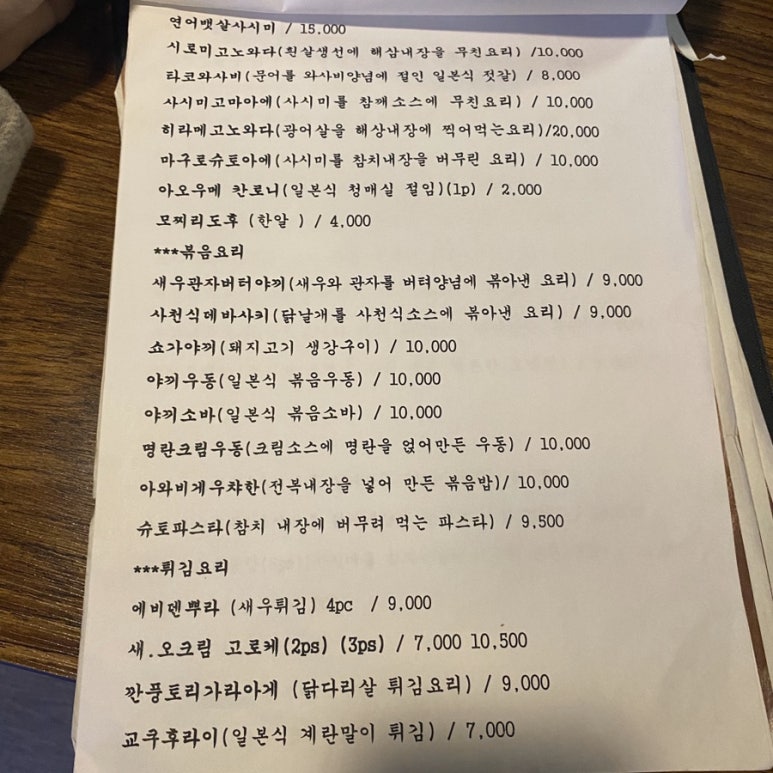 연어뱃살사시미 / 15,000
시로미고노와다(흰살생선에 해삼내장을 무친요리) /10,000
타코와사비(문어를 와사비양념에 절인 일본식 젓갈) / 8,000
사시미고마아에(사시미를 참깨소스에 무친요리) / 10,000
히라메고노와다(광어살을 해상내장에 찍어먹는요리)/20,000
마구로슈토아에(사시미를 참치내장을 버무린 요리) / 10,000
아오우메 칸로니(일본식 청매실 절임)(1p) / 2,000
모찌리도후 (한알 ) / 4,000
***볶음요리
새우관자버터야끼(새우와 관자를 버텨양념에 볶아낸 요리) / 9,000
사천식데바사키(닭날개를 사천식소스에 볶아낸 요리) / 9,000
쇼가야끼(돼지고기 생강구이) / 10,000
야끼우동(일본식 볶음우동) / 10,000
야끼소바(일본식 볶음소바) / 10,000
명란크림우동(크림소스에 명란을 얹어만든 우동) / 10,000
아와비게우챠한(전복내장을 넣어 만든 볶음밥)/ 10,000
슈토파스타(참치 내장에 버무려 먹는 파스타) / 9,500
***튀김요리
에비덴뿌라 (새우튀김) 4pc / 9,000
새.오크림 고로케(2ps) (3ps) / 7,000 10,500
깐풍토리가라아게 (닭다리살 튀김요리) / 9,000
교쿠후라이(일본식 계란말이 튀김) / 7,000